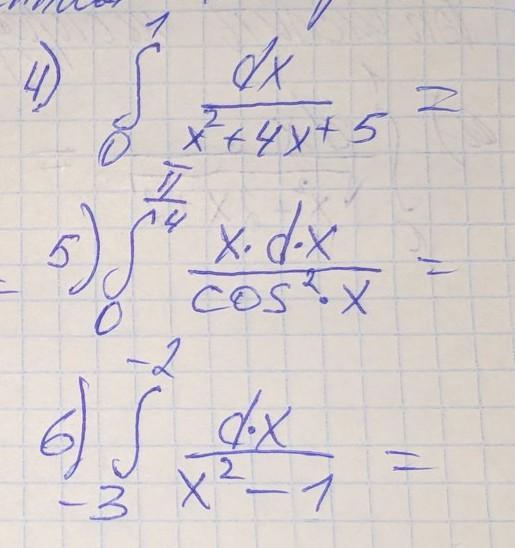 4) ∫₀¹ dx / (x² + 4x + 5) =
5) ∫₀^(π/4) x·d·x / (cos²·x) =
6) ∫₋₃⁻² d·x / (x² − 1) =